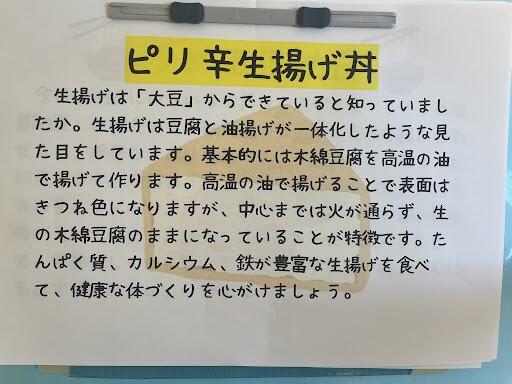 ピリ辛生揚げ丼
生揚げは「大豆」からできていると知っていまし
たか。生揚げは豆腐と油揚げが一体化したような見
た目をしています。基本的には木綿豆腐を高温の油
で揚げて作ります。高温の油で揚げることで表面は
きつね色になりますが、中心までは火が通らず、生
の木綿豆腐のままになっていることが特徴です。た
んぱく質、カルシウム、鉄が豊富な生揚げを食べ
て、健康な体づくりを心がけましょう。